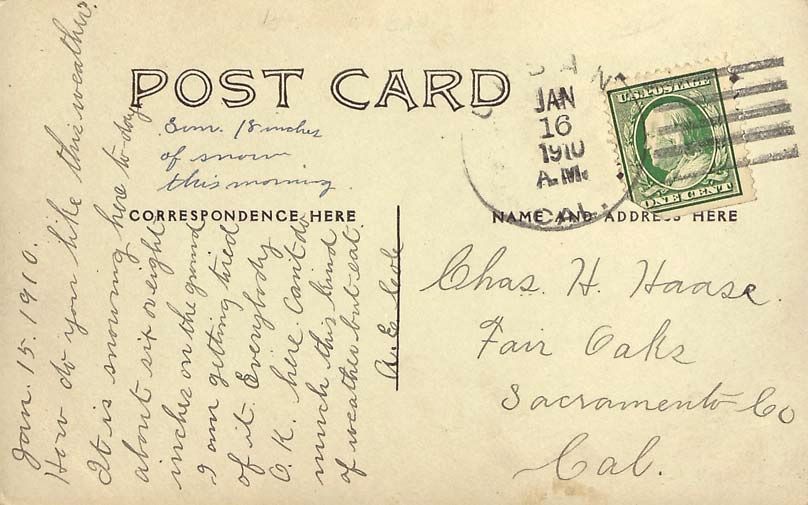 POST CARD
Sun. 18 inches
of snow
this morning.
CORRESPONDENCE HERE
NAME AND ADDRESS HERE
JAN
16
1910
A.M.
CAL.
U.S. POSTAGE
ONE CENT
Jan. 15. 1910.
How do you like this weather.
It is snowing here to-day
about six or eight
inches on the ground
I am getting tired
of it. Everybody
O.K. here. Can't do
much this kind
of weather but eat.
A. E. Cole
Chas. H. Haase.
Fair Oaks
Sacramento Co
Cal.